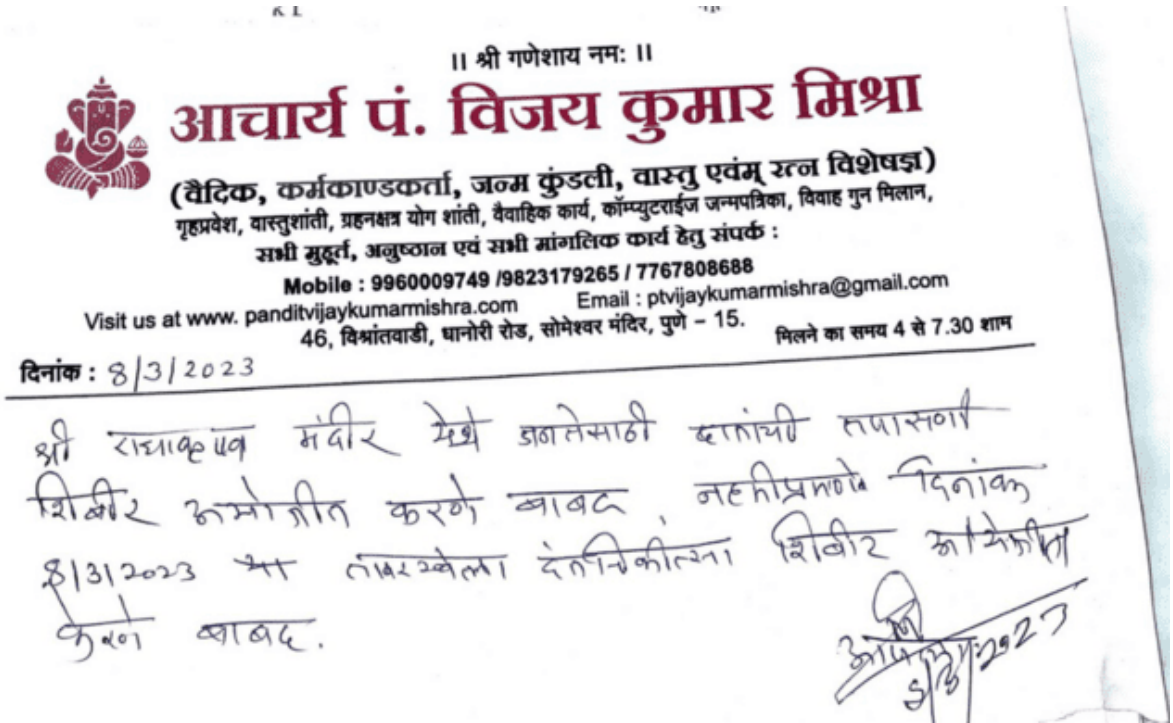 ॥ श्री गणेशाय नमः ॥
आचार्य पं. विजय कुमार मिश्रा
(वैदिक, कर्मकाण्डकर्ता, जन्म कुंडली, वास्तु एवंम् रत्न विशेषज्ञ)
गृहप्रवेश, वास्तुशांती, ग्रहनक्षत्र योग शांती, वैवाहिक कार्य, कॉम्प्युटराईज जन्मपत्रिका, विवाह गुन मिलान,
सभी मुहूर्त, अनुष्ठान एवं सभी मांगलिक कार्य हेतु संपर्क :
Mobile : 9960009749 /9823179265 / 7767808688
Visit us at www. panditvijaykumarmishra.com Email : ptvijaykumarmishra@gmail.com
46, विश्रांतवाडी, धानोरी रोड, सोमेश्वर मंदिर, पुणे – 15. मिलने का समय 4 से 7.30 शाम
दिनांक : 8/3/2023
श्री राधाकृष्ण मंदीर येथे जनतेसाठी दातांची तपासणी
शिबीर आयोजीत करणे बाबद. दिनांक
8/3/2023 या तारखेला दंतचिकीत्सा शिबीर आयोजीत
करणे बाबद.